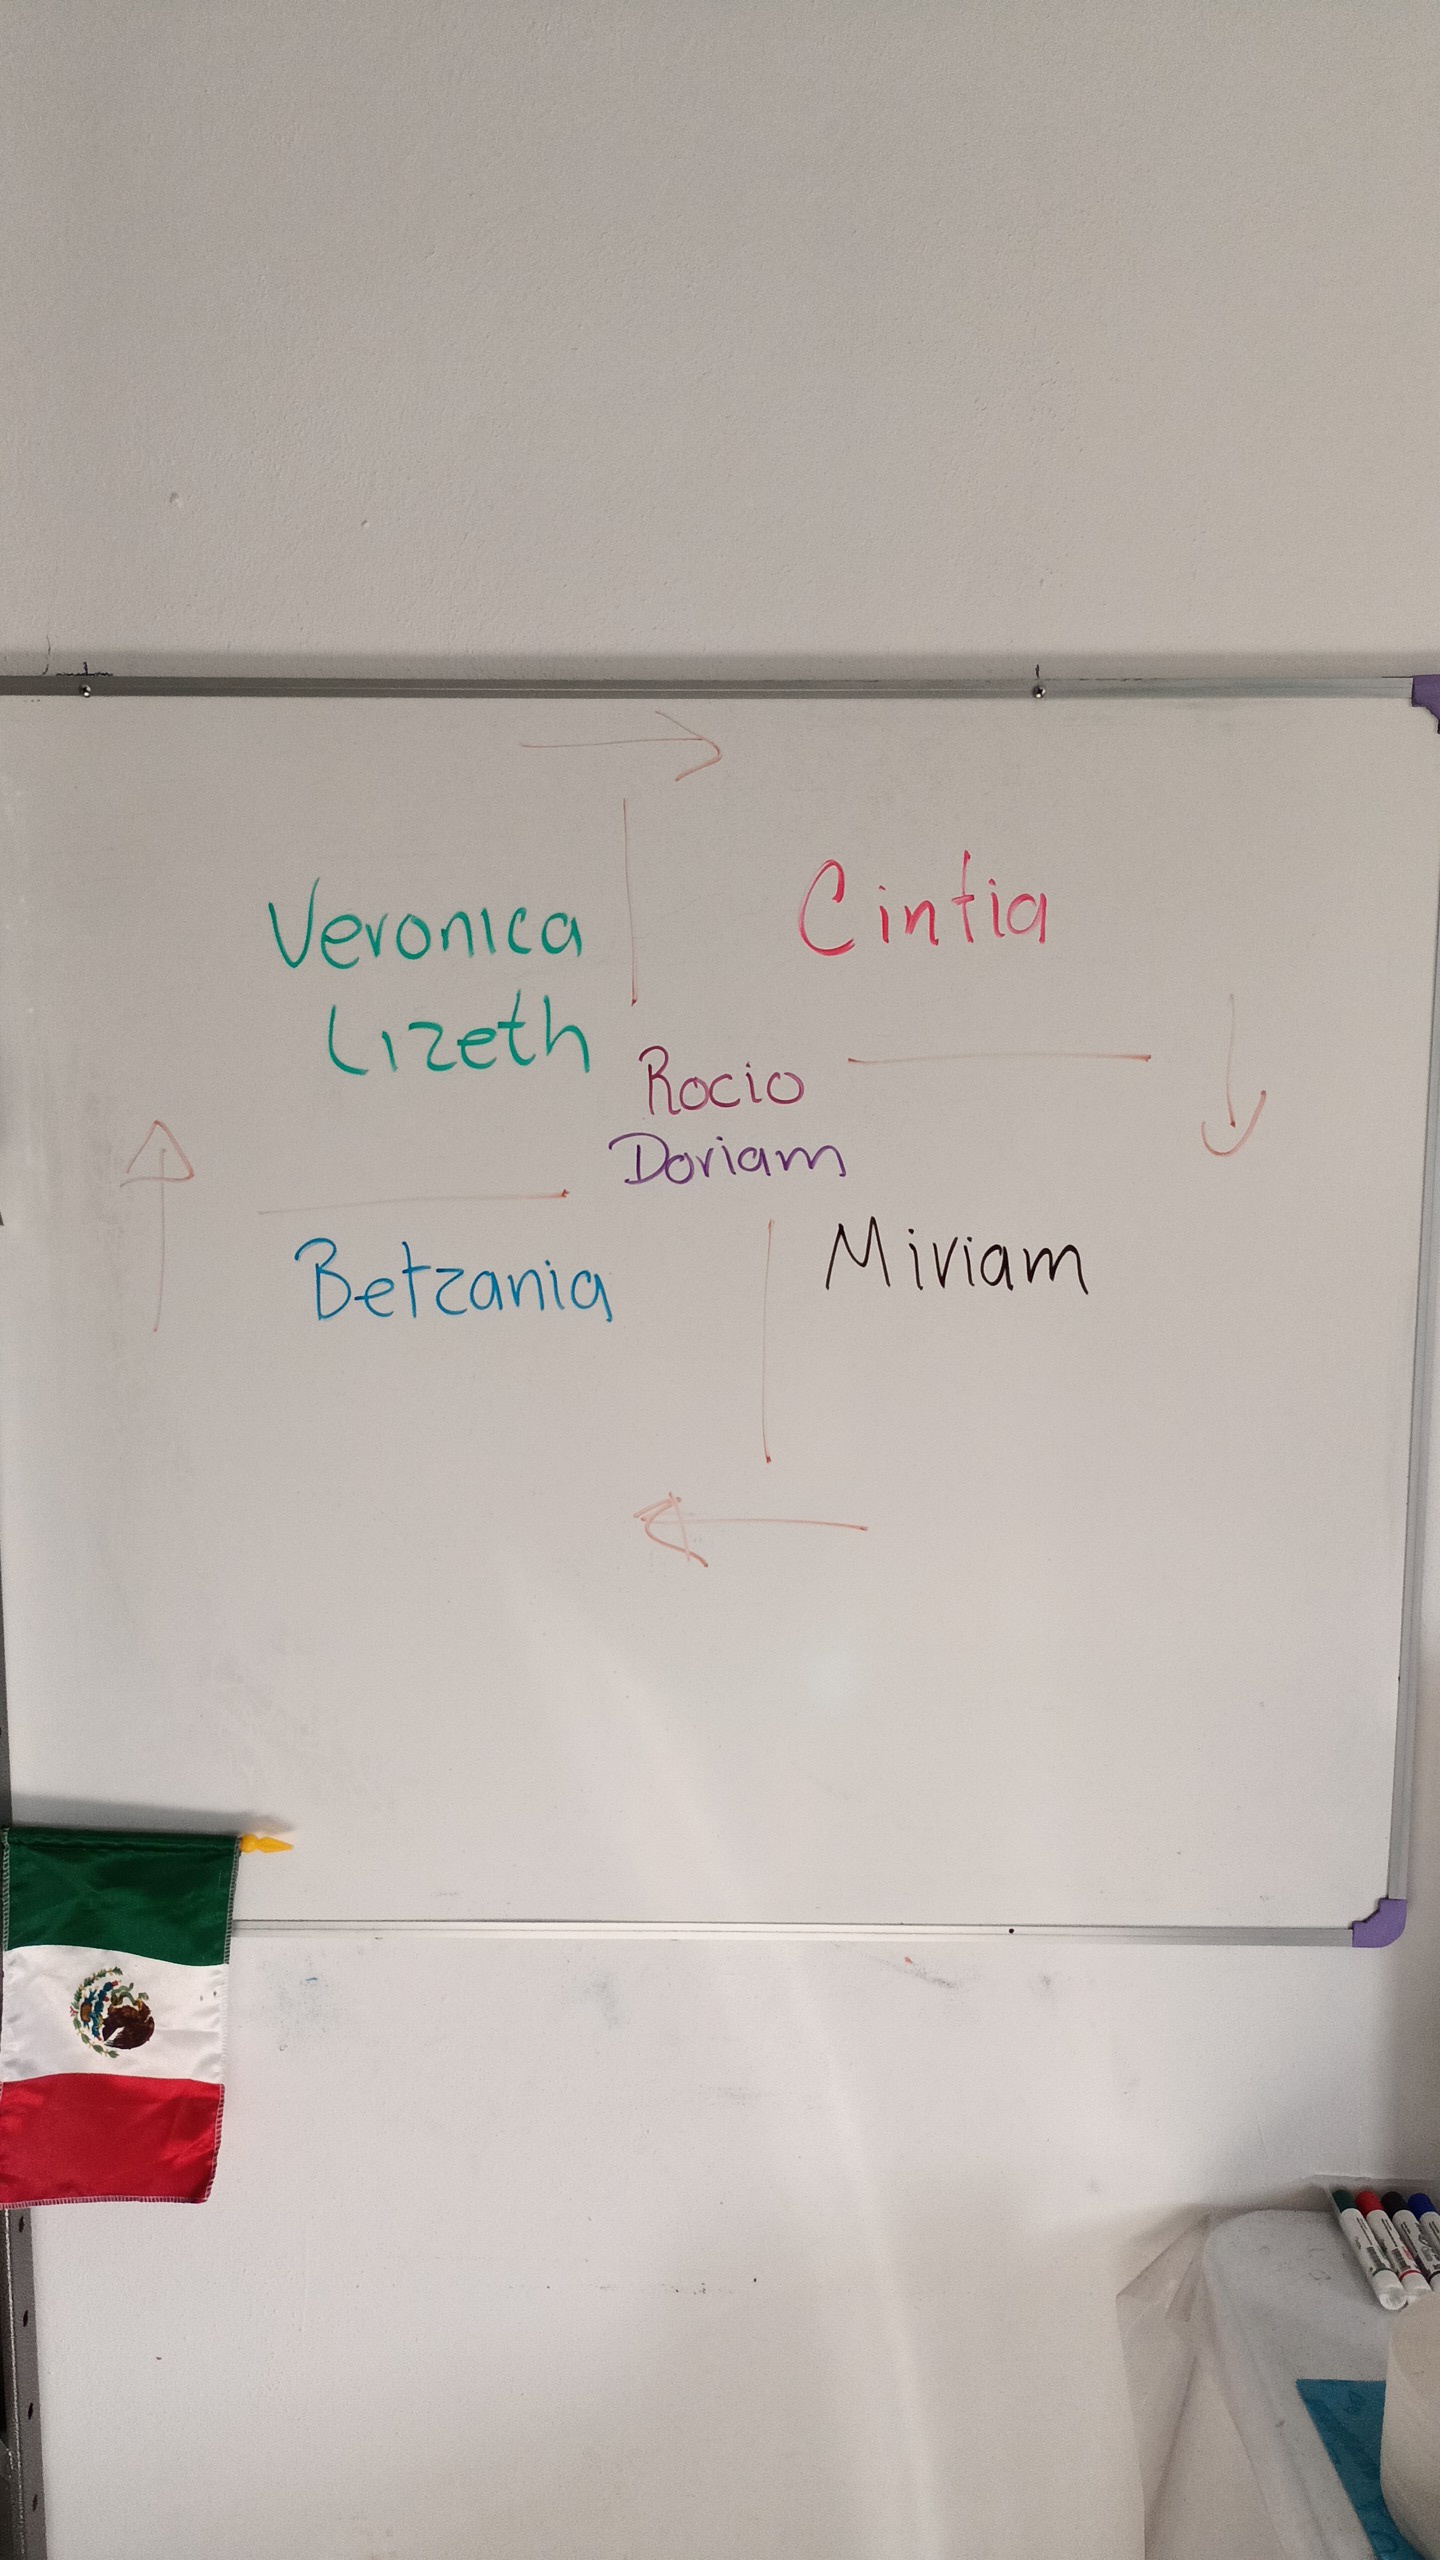 Veronica
Lizeth
Cintia
Rocio
Doriam
Betzania
Miriam